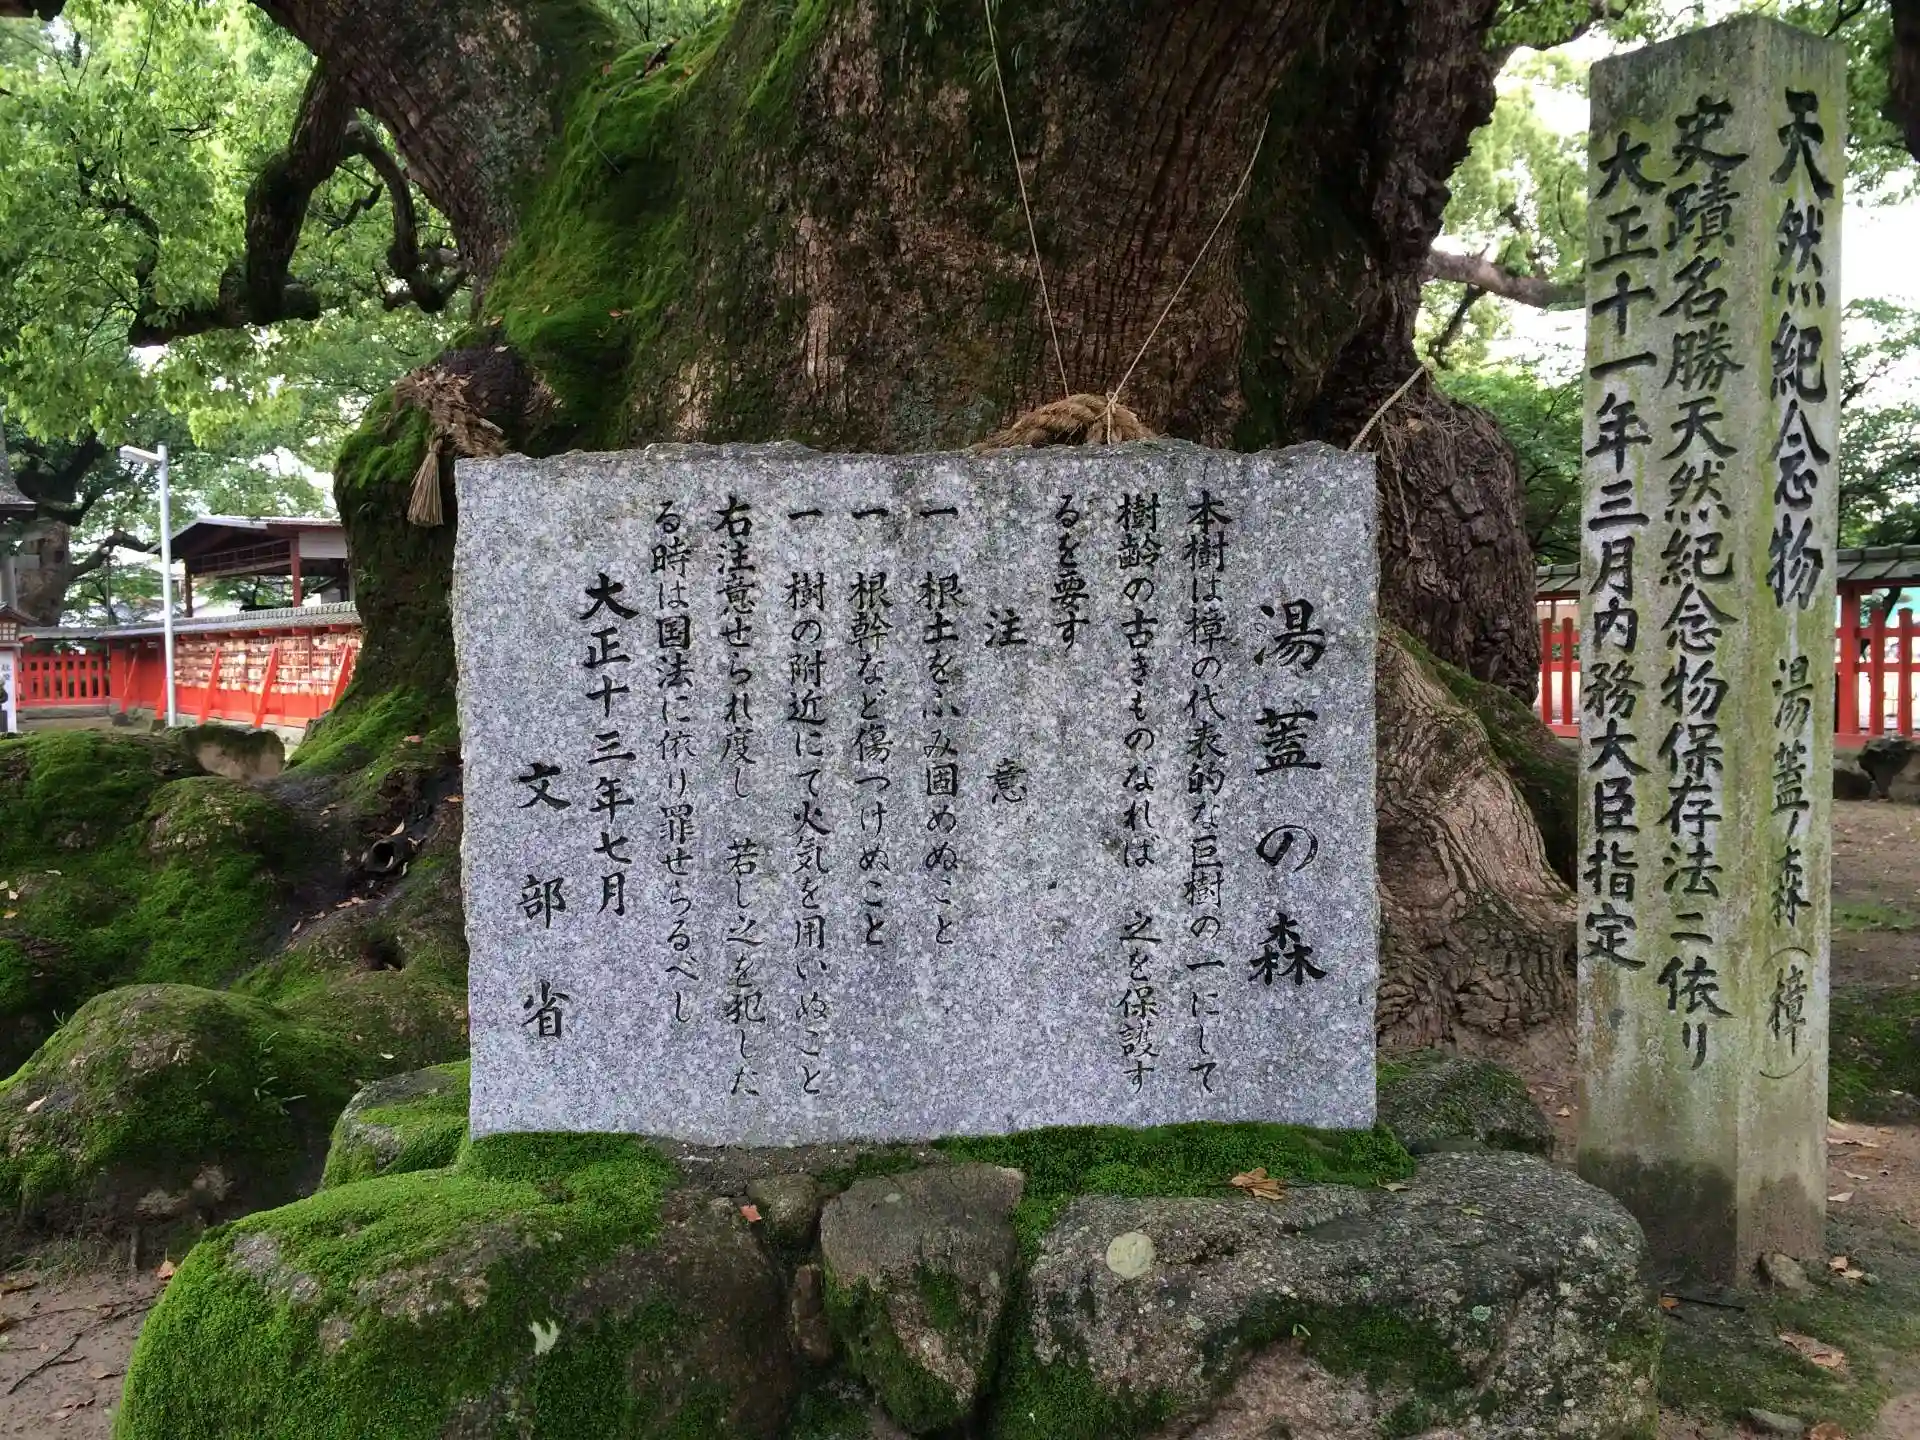 天然紀念物 湯蓋ノ森（樟）
史蹟名勝天然紀念物保存法ニ依リ
大正十一年三月内務大臣指定
湯蓋の森
本樹は樟の代表的な巨樹の一にして
樹齢の古きものなれは 之を保護す
るを要す
注意
一 根土をふみ固めぬこと
一 根幹など傷つけぬこと
一 樹の附近にて火気を用いぬこと
右注意せられ度し 若し之を犯した
る時は国法に依り罪せらるべし
大正十三年七月
文部省